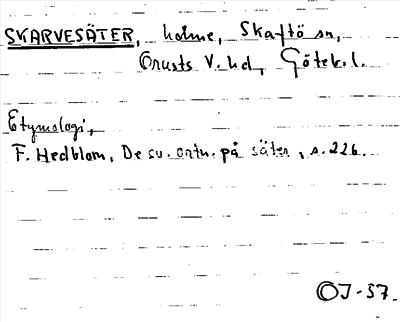 SKARVESÄTER, holme, Skaftö sn,
Orusts V. hd, Göteb. l.
Etymologi,
F. Hedblom, De sv. ortn. på säter, s. 226.
OJ-37.